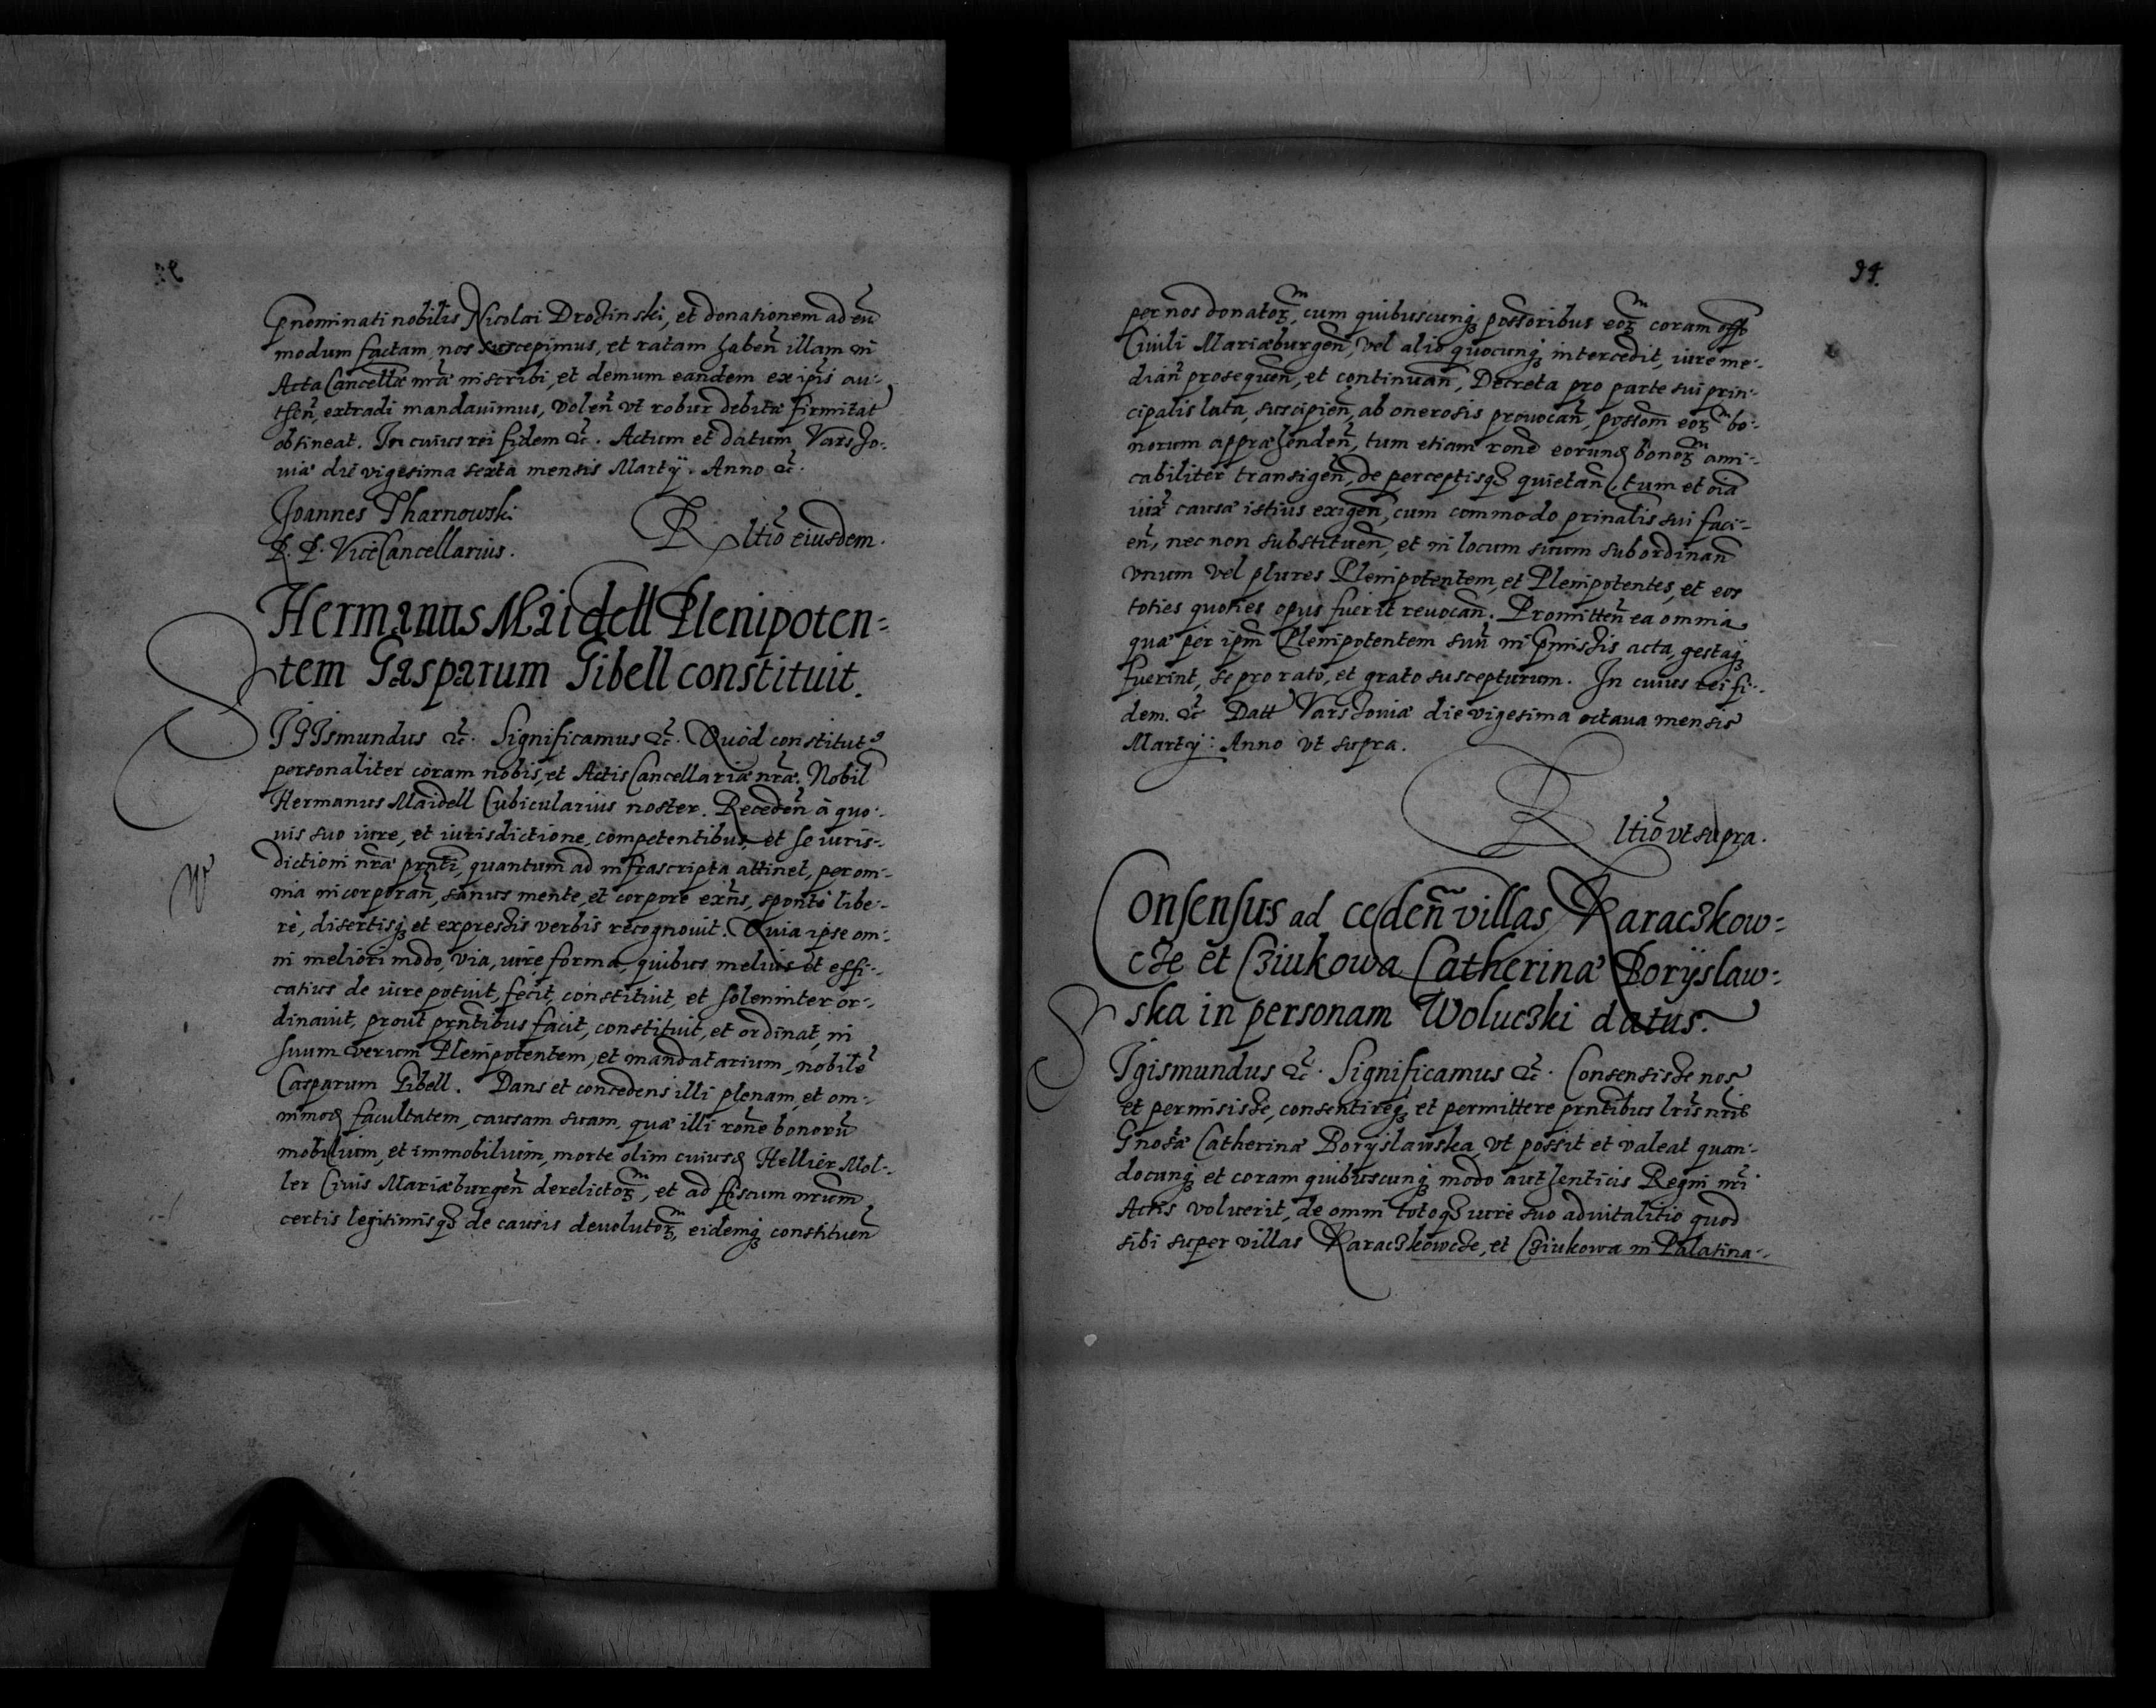 Pnominati nobilis Nicolai Droginski, et donationem ad eũ
modum factam, nos suscepimus, et ratam habeñ illam in
Acta Cancellæ nrã inscribi, et demum eandem ex ipis au-
theñ, extradi mandauimus, voleñ vt robur debitæ firmitat
obtineat. In cuius rei fidem &c. Actum et datum Varsso-
uiæ die vigesima sexta mensis Martij. Anno &c.
Joannes Tharnowski
R. P. ViceCancellarius.
Rltio eiusdem.
Hermanus Maidell Plenipoten=
tem Gasparum Gibell constituit.
SIGIsmundus &c. Significamus &c. Quòd constitut9
personaliter coram nobis, et Actis Cancellariæ nrã. Nobil
Hermanus Maidell Cubicularius noster. Recedeñ à quo-
uis suo iure, et iurisdictione, competentibus, et se iuris-
dictioni nrã prnti, quantum ad infrascripta attinet, per om-
nia incorporañ, sanus mente, et corpore exñs, sponte libe-
rè, disertisq; et expressis verbis recognouit. Quia ipse om-
ni meliori modo, via, iure, forma, quibus melius et effi-
catius de iure potuit, fecit, constituit, et solenniter or-
dinauit, prout prntibus facit, constituit, et ordinat, in
suum verum Plenipotentem, et mandatarium, nobile
Casparum Gibell. Dans et concedens illi plenam, et om-
nimod facultatem, causam suam, quæ illi rone bonorũ
mobilium, et immobilium, morte olim cuiusd Hellier Mol-
ler Ciuis Mariæburgeñ derelictor, et ad fiscum nrum
certis legitimisq; de causis deuolutor, eidemq; constitueñ
94.
per nos donator, cum quibuscunq; possoribus eor coram offo
Ciuili Mariæburgeñ, vel alio quocunq; intercedit, iure me-
diañ prosequeñ, et continuañ, Decreta pro parte sui prin-
cipalis lata, suscipieñ, ab onerosis prouocañ, possom eor bo-
norum appræhendeñ, tum etiam rone eorund bonor ami-
cabiliter transigeñ, de perceptisq; quietañ, tum et oia
iux causæ istius exigeñ, cum commodo prinalis sui faci-
eñ, nec non substitueñ, et in locum suum subordinañ
vnum vel plures Plenipotentem, et Plenipotentes, et eos
toties quoties opus fuerit reuocañ. Promitteñ ea omnia
quæ per ipm Plenipotentem suũ in pmissis acta, gestaq;
fuerint, se pro rato, et grato suscepturum. In cuius rei fi-
dem. &c Datt Varssouiæ die vigesima octaua mensis
Martij: Anno vt supra.
Rltio vt supra.
Consensus ad cedeñ villas Karaczkow=
cze et Cziukowa Catherinæ Borÿslaw=
ska in personam Woluczki datus.
SIgismundus &c. Significamus &c. Consensisse nos
et permisisse, consentireq; et permittere prntibus lris nris
Gnosæ Catherinæ Borÿslawska, vt possit et valeat quan-
docunq; et coram quibuscunq; modo authenticis Regni nri
Actis voluerit, de omni totoq; iure suo aduitalitio quod
sibi super villas Karaczkowcze, et Cziukowa in Palatina-